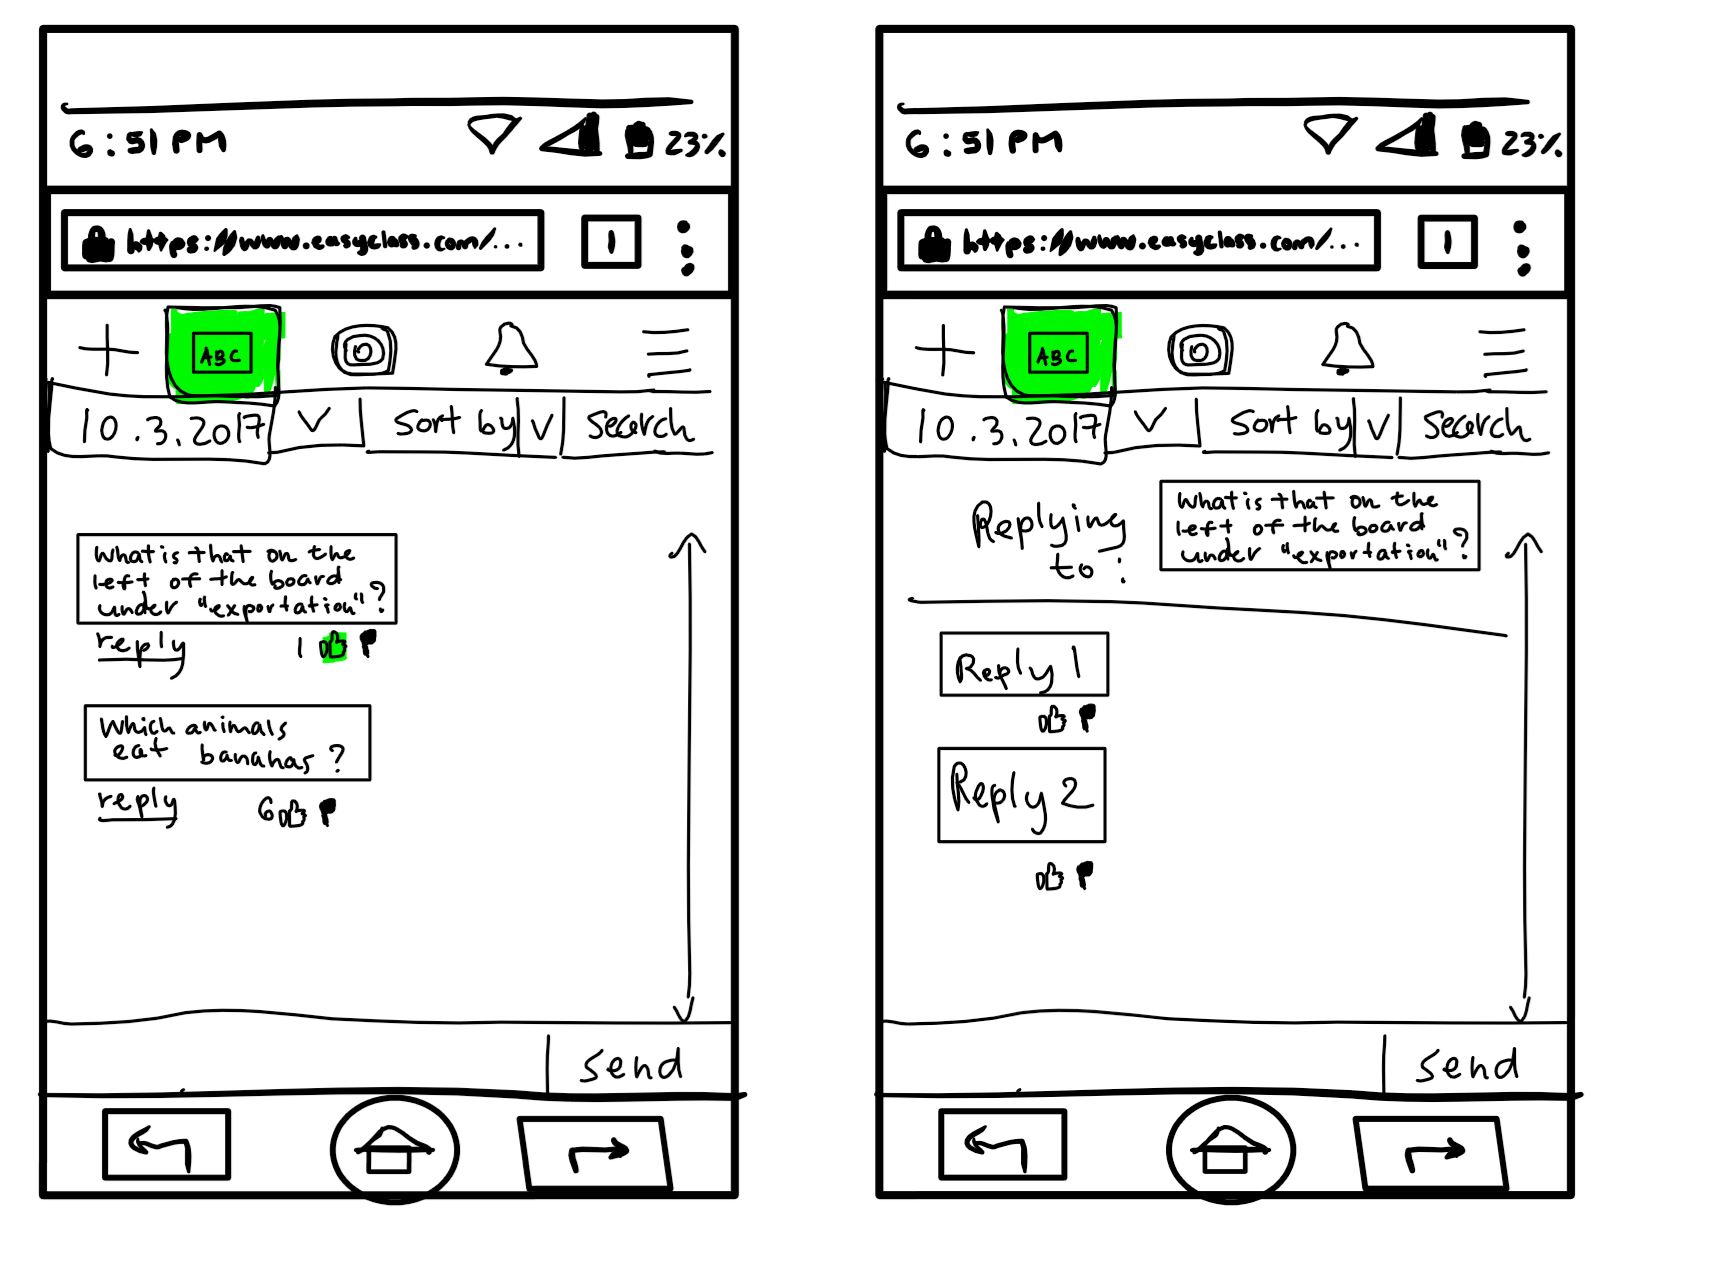 6:51 PM 23%
https://www.easyclass.com/... 1
ABC
10.3.2017 Sort by Search
What is that on the
left of the board
under "exportation"?
reply 1
Which animals
eat bananas?
reply 6
Send
6:51 PM 23%
https://www.easyclass.com/... 1
ABC
10.3.2017 Sort by Search
Replying
to:
What is that on the
left of the board
under "exportation"?
Reply 1
Reply 2
Send